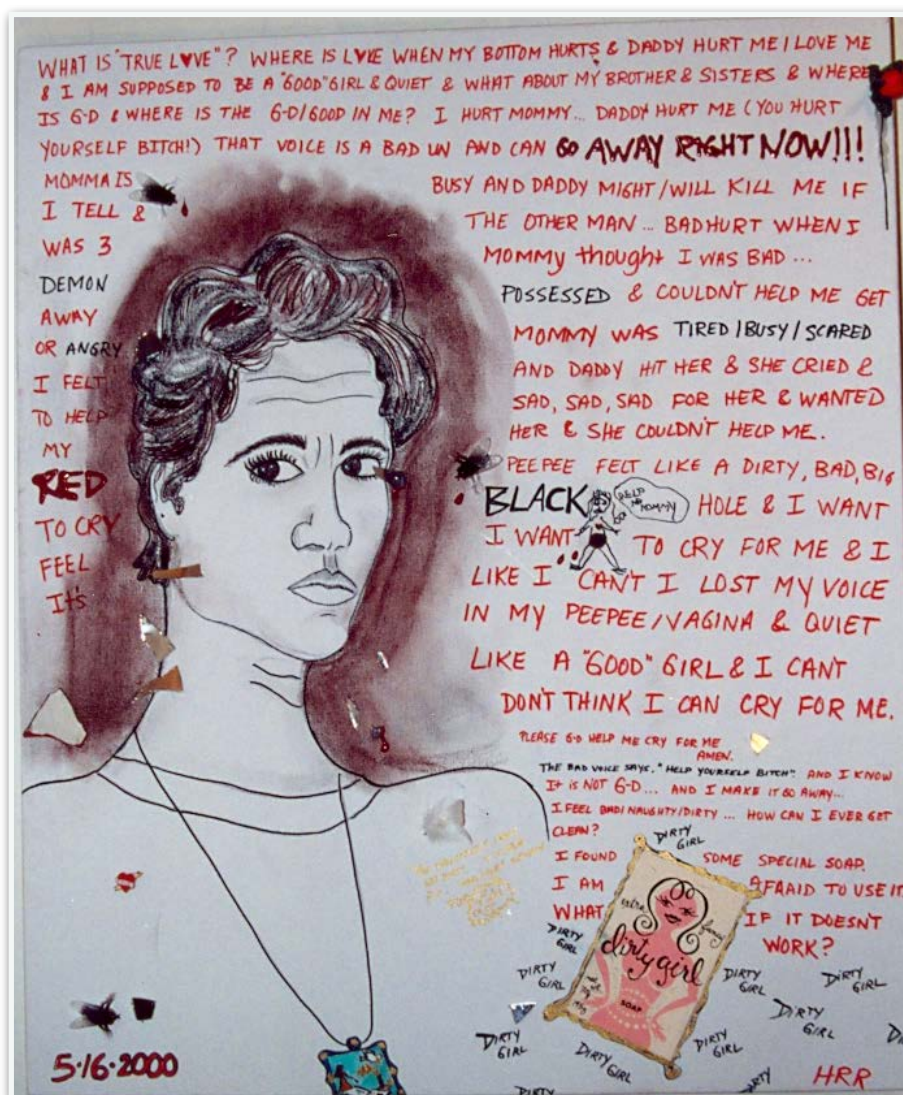 WHAT IS "TRUE L♥VE"? WHERE IS L♥VE WHEN MY BOTTOM HURTS & DADDY HURT ME/LOVE ME
& I AM SUPPOSED TO BE A "GOOD" GIRL & QUIET & WHAT ABOUT MY BROTHER & SISTERS & WHERE
IS G-D & WHERE IS THE G-D/GOOD IN ME? I HURT MOMMY... DADDY HURT ME (YOU HURT
YOURSELF BITCH!) THAT VOICE IS A BAD UN AND CAN GO AWAY RIGHT NOW!!!
MOMMA IS BUSY AND DADDY MIGHT/WILL KILL ME IF
I TELL & THE OTHER MAN... BADHURT WHEN I
WAS 3 MOMMY thought I WAS BAD...
DEMON POSSESSED & COULDN'T HELP ME GET
AWAY MOMMY WAS TIRED/BUSY/SCARED
OR ANGRY AND DADDY HIT HER & SHE CRIED &
I FELT SAD, SAD, SAD FOR HER & WANTED
TO HELP HER & SHE COULDN'T HELP ME.
MY PEEPEE FELT LIKE A DIRTY, BAD, BIG
RED BLACK HELP ME MOMMY HOLE & I WANT
TO CRY I WANT TO CRY FOR ME & I
FEEL LIKE I CAN'T I LOST MY VOICE
It's IN MY PEEPEE/VAGINA & QUIET
LIKE A "GOOD" GIRL & I CAN'T
DON'T THINK I CAN CRY FOR ME.
PLEASE G-D HELP ME CRY FOR ME
AMEN.
THE BAD VOICE SAYS, "HELP YOURSELF BITCH". AND I KNOW
It is NOT G-D... AND I MAKE IT GO AWAY...
I FEEL BAD/NAUGHTY/DIRTY... HOW CAN I EVER GET
CLEAN?
DIRTY GIRL
I FOUND SOME SPECIAL SOAP.
I AM AFRAID TO USE IT.
WHAT IF IT DOESN'T
WORK?
extra fancy
dirty girl
SOAP
DIRTY GIRL
DIRTY GIRL
DIRTY GIRL
DIRTY GIRL
DIRTY GIRL
DIRTY GIRL
DIRTY GIRL
DIRTY GIRL
DIRTY
5·16·2000
HRR